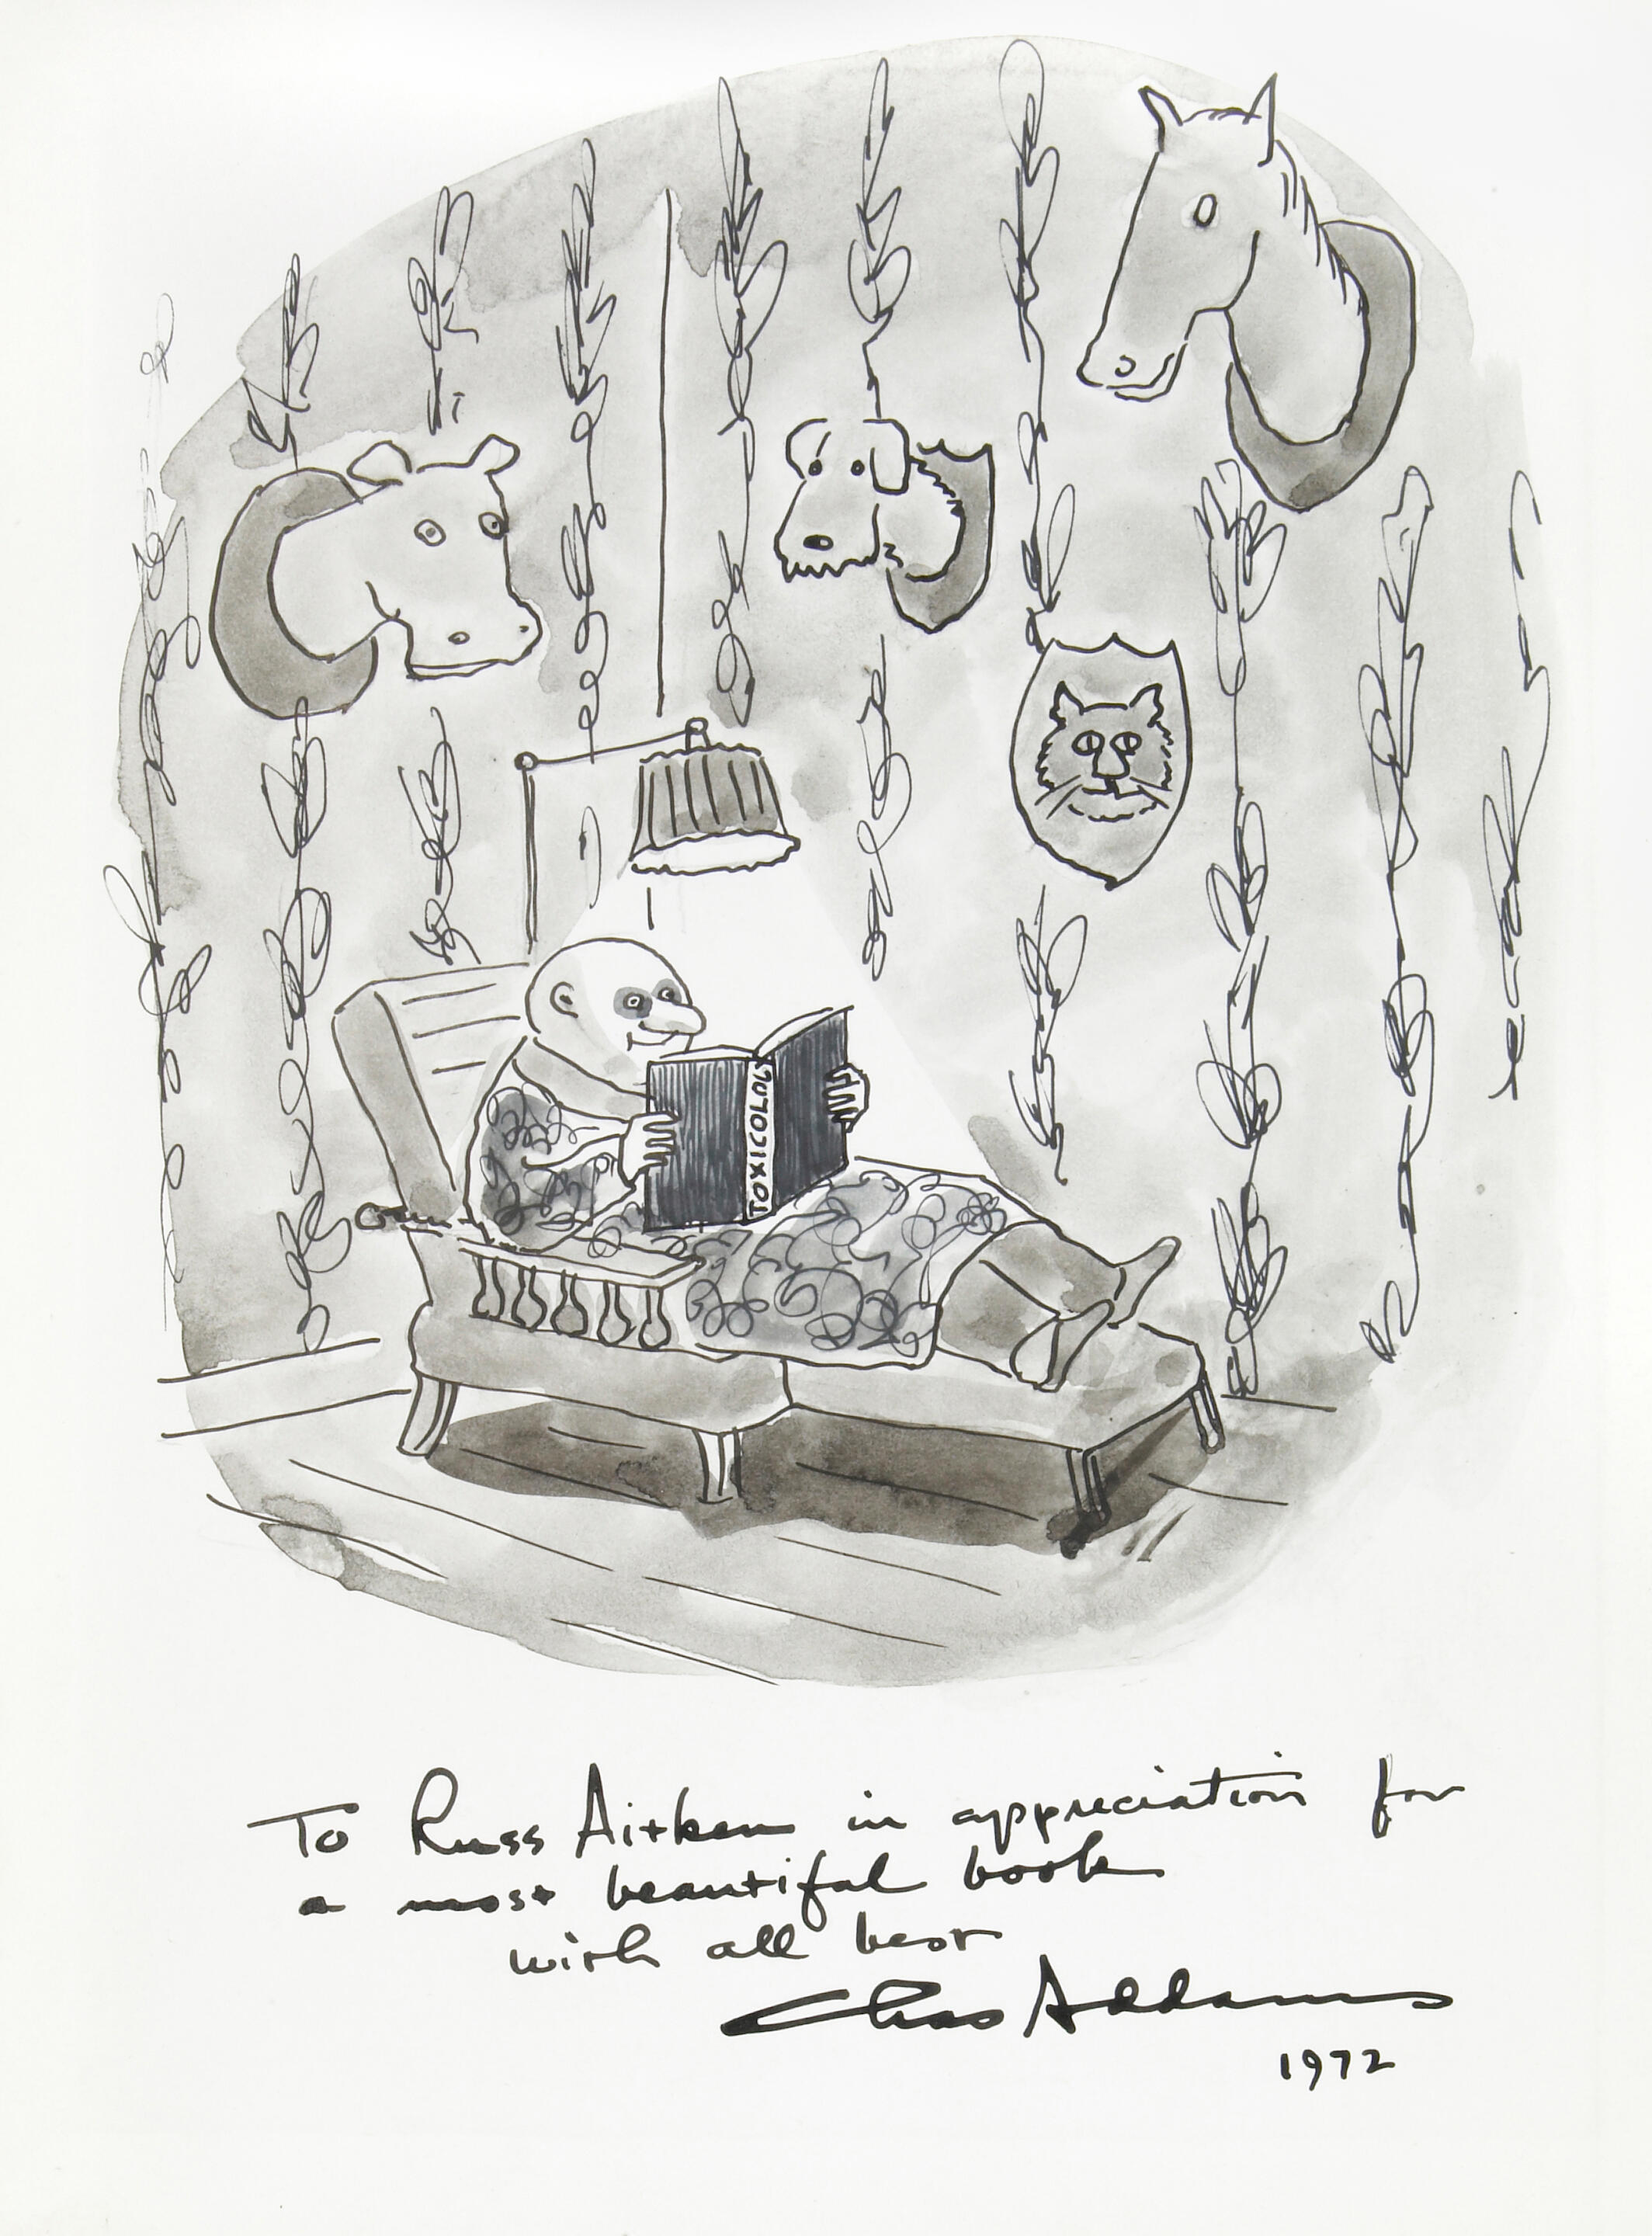 TOXICOLOGY
To Russ Aitken in appreciation for
a most beautiful book
with all best
Chas Addams
1972